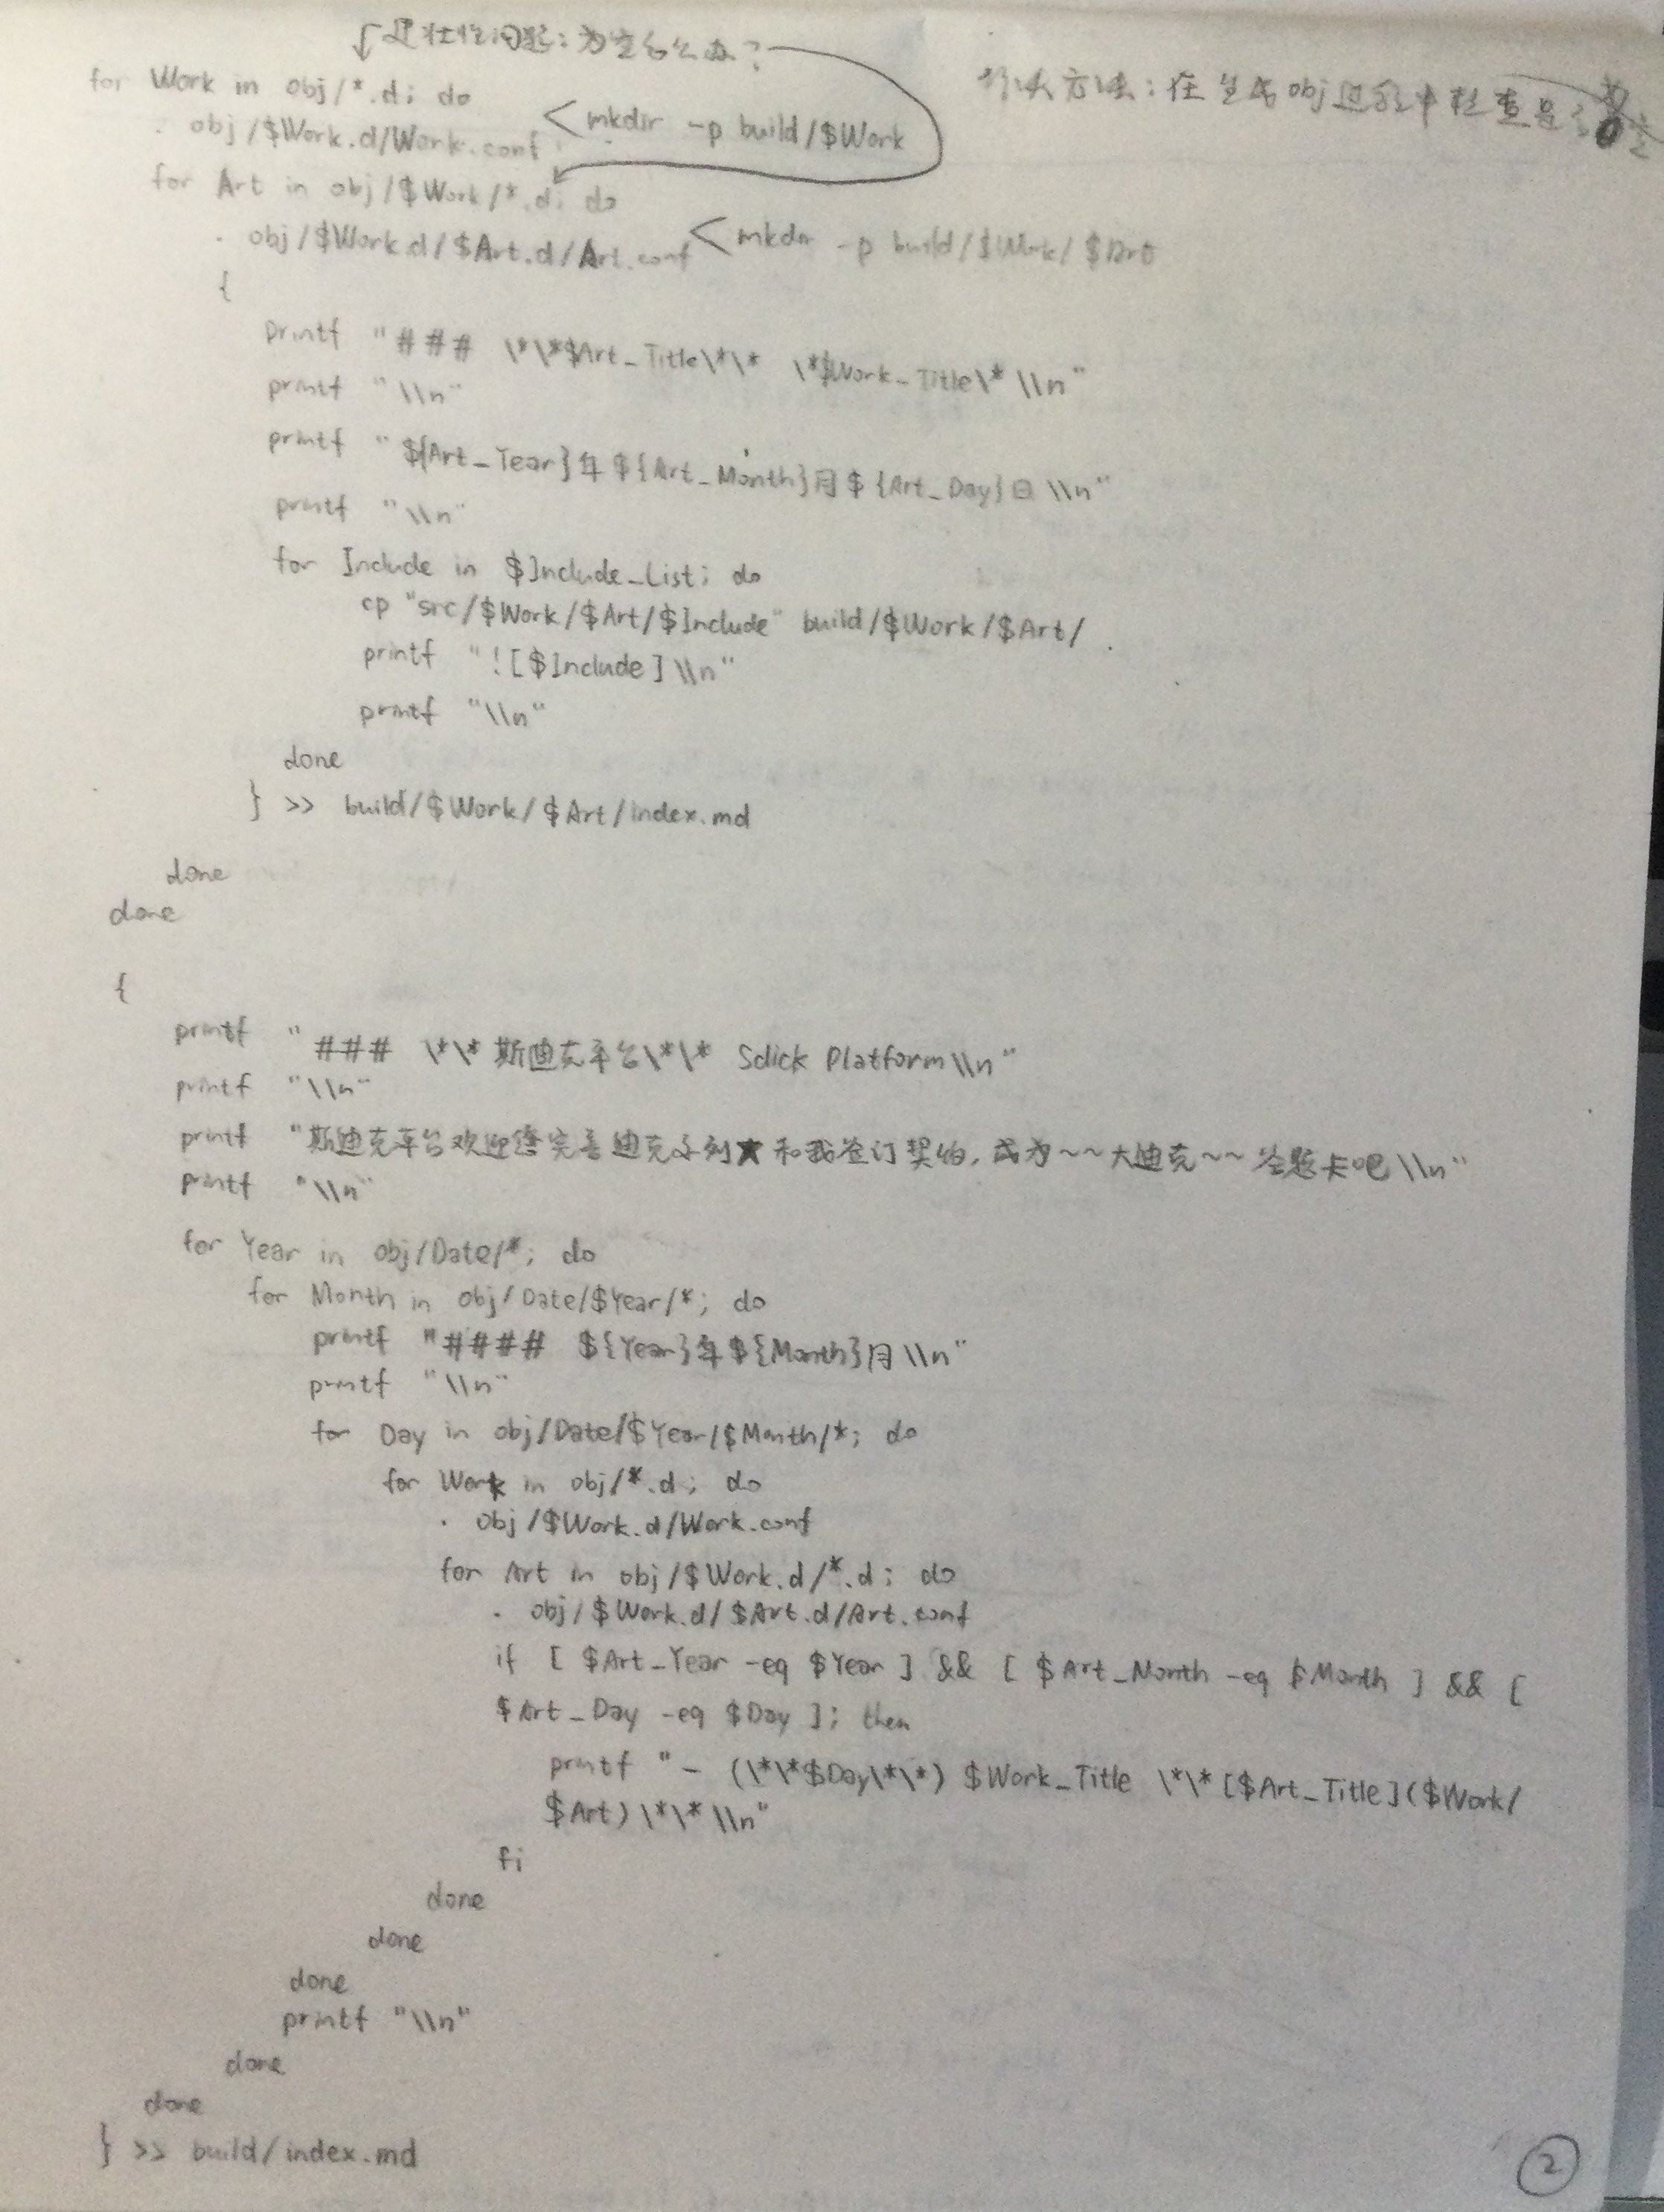 健壮性问题：为空怎么办？
for Work in obj/*.d; do
解决方法：在生成obj过程中检查是否为空
. obj/$Work.d/Work.conf
<mkdir -p build/$Work
for Art in obj/$Work/*.d; do
. obj/$Work.d/$Art.d/Art.conf
<mkdir -p build/$Work/$Art
{
printf "### \*\*$Art_Title\*\* \*$Work_Title\* \\n"
printf "\\n"
printf "${Art_Year}年${Art_Month}月${Art_Day}日\\n"
printf "\\n"
for Include in $Include_List; do
cp "src/$Work/$Art/$Include" build/$Work/$Art/
printf "![$Include]\\n"
printf "\\n"
done
} >> build/$Work/$Art/index.md
done
done
{
printf "### \*\*斯迪克平台\*\* Sdick Platform\\n"
printf "\\n"
printf "斯迪克平台欢迎您完善迪克系列★和我签订契约，成为~~大迪克~~答题卡吧\\n"
printf "\\n"
for Year in obj/Date/*; do
for Month in obj/Date/$Year/*; do
printf "#### ${Year}年${Month}月\\n"
printf "\\n"
for Day in obj/Date/$Year/$Month/*; do
for Work in obj/*.d; do
. obj/$Work.d/Work.conf
for Art in obj/$Work.d/*.d; do
. obj/$Work.d/$Art.d/Art.conf
if [ $Art_Year -eq $Year ] && [ $Art_Month -eq $Month ] && [
$Art_Day -eq $Day ]; then
printf "- (\*\*$Day\*\*) $Work_Title \*\*[$Art_Title]($Work/
$Art)\*\*\\n"
fi
done
done
done
printf "\\n"
done
done
} >> build/index.md
2